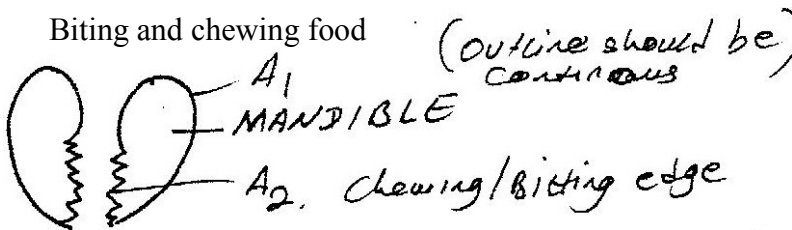 Biting and chewing food
(Outline should be
continous)
A1
MANDIBLE
A2. Chewing/Bitting edge